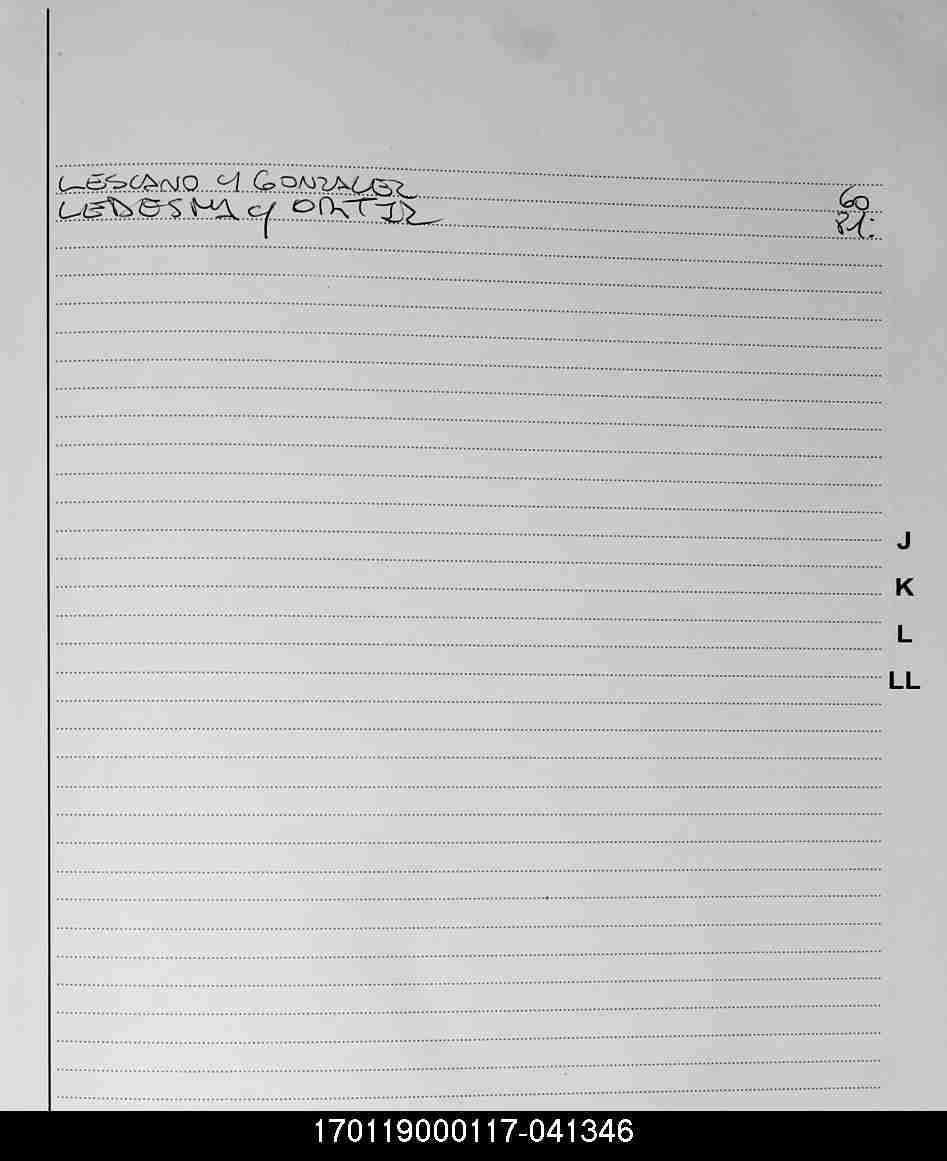 LESCANO y GONZALEZ 60
LEDESMA y ORTIZ
J
K
L
LL
170119000117-041346